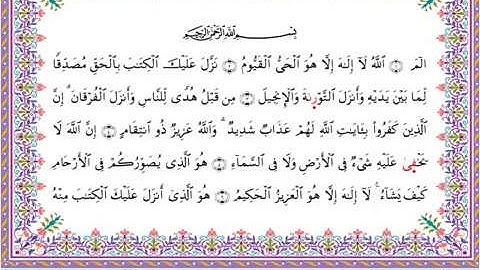 بِسْمِ اللَّهِ الرَّحْمَٰنِ الرَّحِيمِ
الٓمٓ ۝ اللَّهُ لَآ إِلَٰهَ إِلَّا هُوَ الْحَىُّ الْقَيُّومُ ۝ نَزَّلَ عَلَيْكَ الْكِتَٰبَ بِالْحَقِّ مُصَدِّقًا
لِّمَا بَيْنَ يَدَيْهِ وَأَنزَلَ التَّوْرَىٰةَ وَالْإِنجِيلَ ۝ مِن قَبْلُ هُدًى لِّلنَّاسِ وَأَنزَلَ الْفُرْقَانَ ۗ إِنَّ
الَّذِينَ كَفَرُوا بِـَٔايَٰتِ اللَّهِ لَهُمْ عَذَابٌ شَدِيدٌ ۗ وَاللَّهُ عَزِيزٌ ذُو انتِقَامٍ ۝ إِنَّ اللَّهَ لَا
يَخْفَىٰ عَلَيْهِ شَىْءٌ فِى الْأَرْضِ وَلَا فِى السَّمَآءِ ۝ هُوَ الَّذِى يُصَوِّرُكُمْ فِى الْأَرْحَامِ
كَيْفَ يَشَآءُ ۚ لَآ إِلَٰهَ إِلَّا هُوَ الْعَزِيزُ الْحَكِيمُ ۝ هُوَ الَّذِىٓ أَنزَلَ عَلَيْكَ الْكِتَٰبَ مِنْهُ